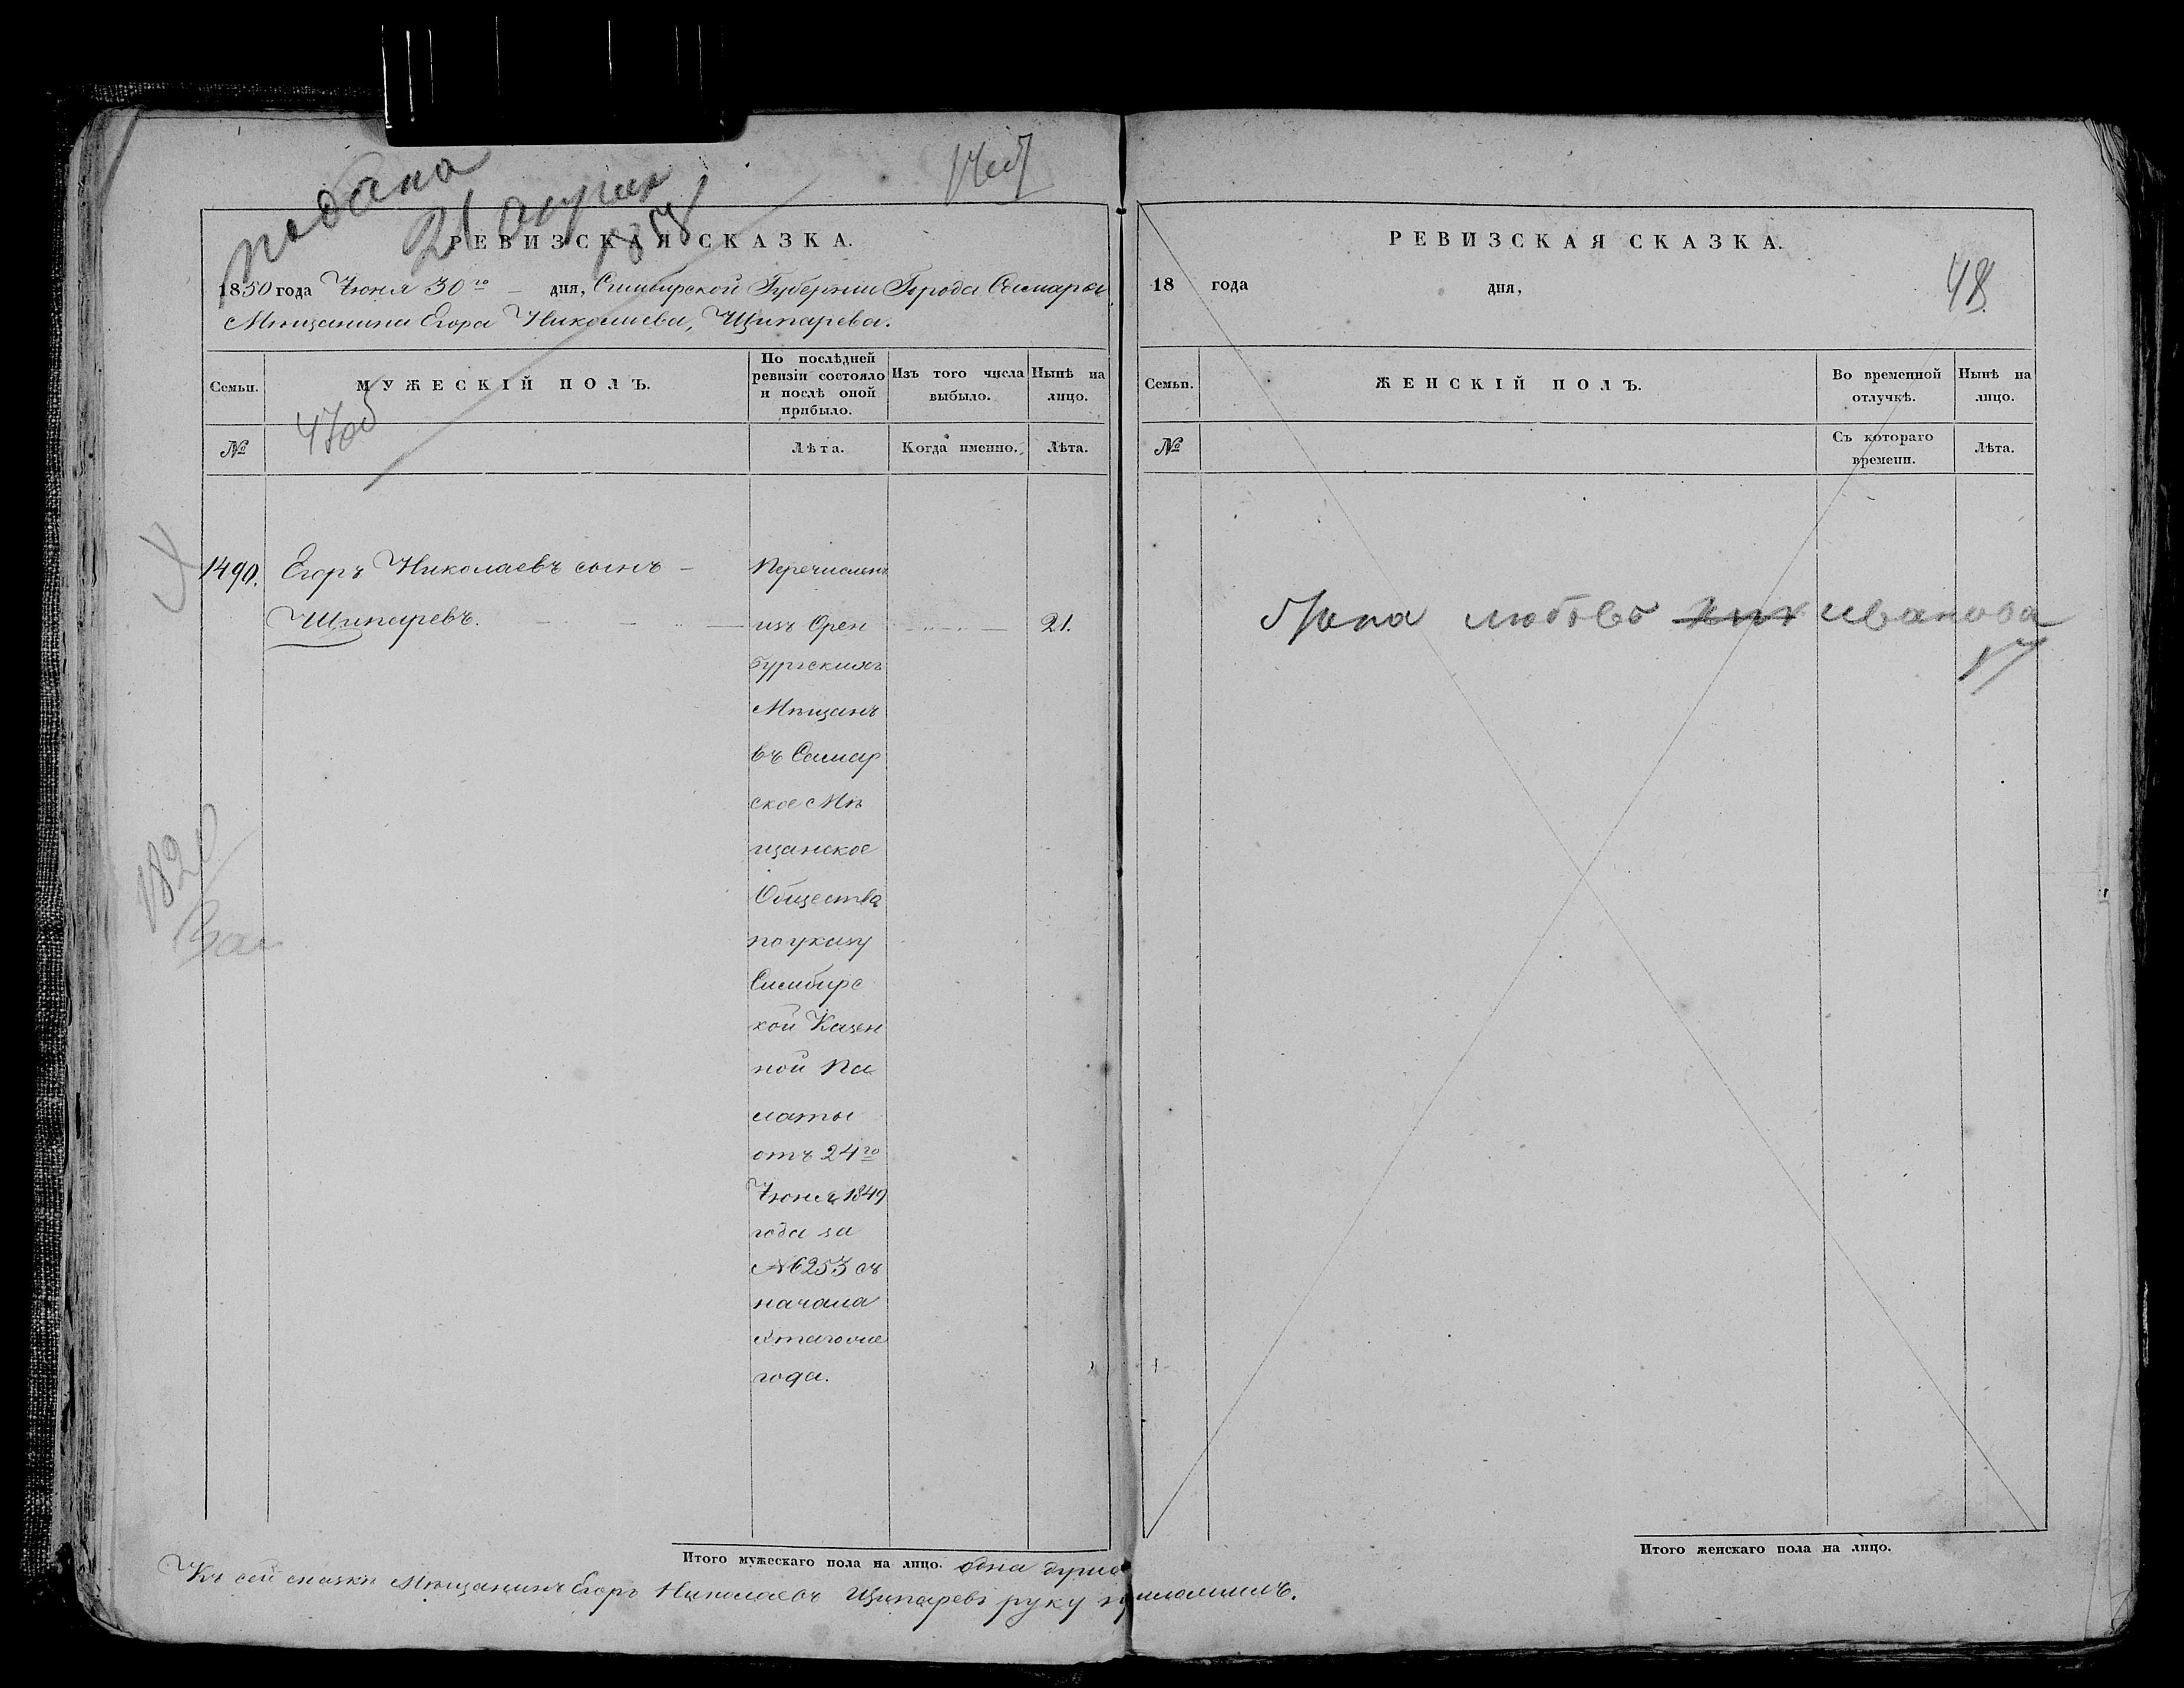 подана
21 апреля
1858
РЕВИЗСКАЯ СКАЗКА.
1850 года Июня 30го дня, Симбирской Губернии Города Самары
Мѣщанина Егора Николаева, Щипарева.
Семьи.
МУЖЕСКІЙ ПОЛЪ.
По послѣдней ревизіи состояло и послѣ оной прибыло.
Изъ того числа выбыло.
Нынѣ на лицо.
№
47об
Лѣта.
Когда именно.
Лѣта.
1490.
Егоръ Николаевъ сынъ
Щипаревъ.
21.
Перечисленъ
изъ Орен
бургскихъ
Мѣщанъ
въ Самар
ское Мѣ
щанское
Общество
по указу
Симбирс
кой Казен
ной Па
латы
отъ 24го
Июня 1849
года за
№ 6253 съ
начала
года.
1820
Итого мужескаго пола на лицо. одна душа
Къ сей сказкѣ Мѣщанинъ Егоръ Николаевъ Щипаревъ руку приложилъ.
РЕВИЗСКАЯ СКАЗКА.
18 года дня,
48
Семьи.
ЖЕНСКІЙ ПОЛЪ.
Во временной отлучкѣ.
Нынѣ на лицо.
№
Съ котораго времени.
Лѣта.
жена любовь иванова
17
Итого женскаго пола на лицо.